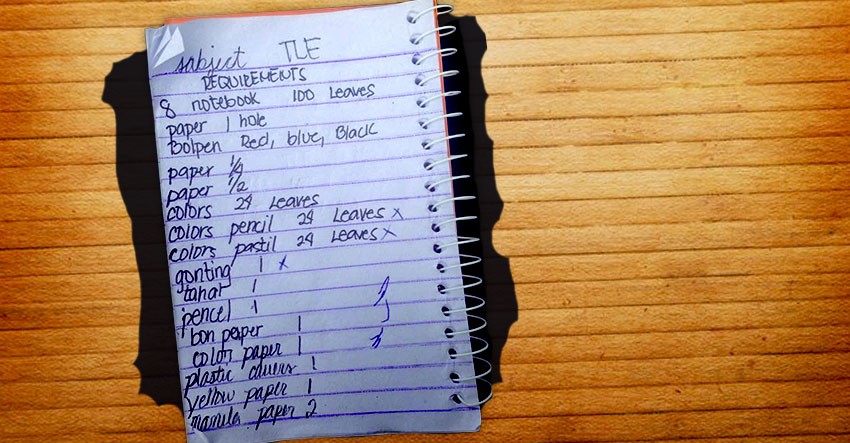 subject TLE
REQUIREMENTS
8 notebook 100 leaves
paper 1 hole
Bolpen Red, blue, Black
paper 1/4
paper 1/2
colors 24 Leaves
colors pencil 24 Leaves x
colors pastil 24 Leaves x
gonting 1 x
tahar 1
pencel 1
bon paper 1
color paper 1
plastic covers 1
yellow paper 1
manila paper 2